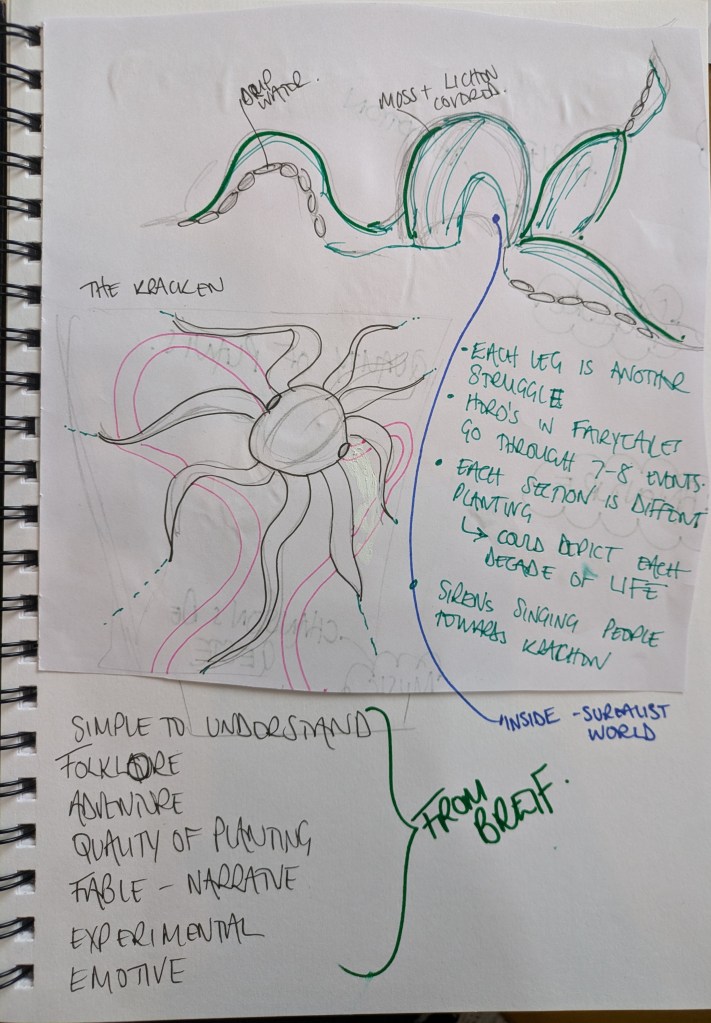 DRIP
WATER.
MOSS + LICHON
COVERED.
THE KRACKEN
• EACH LEG IS ANOTHER
STRUGGLE
• HORO'S IN FAIRYTALES
GO THROUGH 7-8 EVENTS.
• EACH SECTION IS DIFFENT
PLANTING
↳ COULD DEPICT EACH
DECADE OF LIFE
SIRENS SINGING PEOPLE
TOWARDS KRACHON
INSIDE - SUREALIST
WORLD
SIMPLE TO UNDERSTAND
FOLKLORE
ADVENTURE
QUALITY OF PLANTING
FABLE - NARRATIVE
EXPERIMENTAL
EMOTIVE
FROM
BREIF.